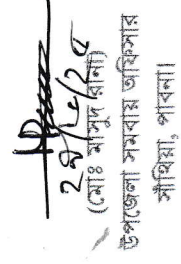 ২৪/৮/২৫
(মোঃ মাসুদ রানা)
উপজেলা সমবায় অফিসার
সাঁথিয়া, পাবনা।